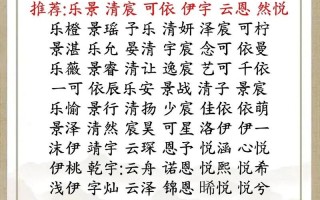 推荐:乐景 清宸 可依 伊宇 云恩 然悦
乐橙 景瑶 子乐 清妍 泽宸 可檬
景湛 乐允 晏清 宇宸 念可 依曼
乐薇 景睿 清让 逸宸 艺可 千依
一可 依辰 乐安 景战 清子 景宸
乐愉 景行 清扬 少宸 佳依 依萌
景泽 清然 宸昊 可星 洛伊 伊一
沫伊 靖宇 云琛 恩予 悦涵 心悦
伊桃 乾宇 云舟 诺恩 悦熙 悦希
浅伊 宇灿 云泽 锦恩 晞悦 悦兮